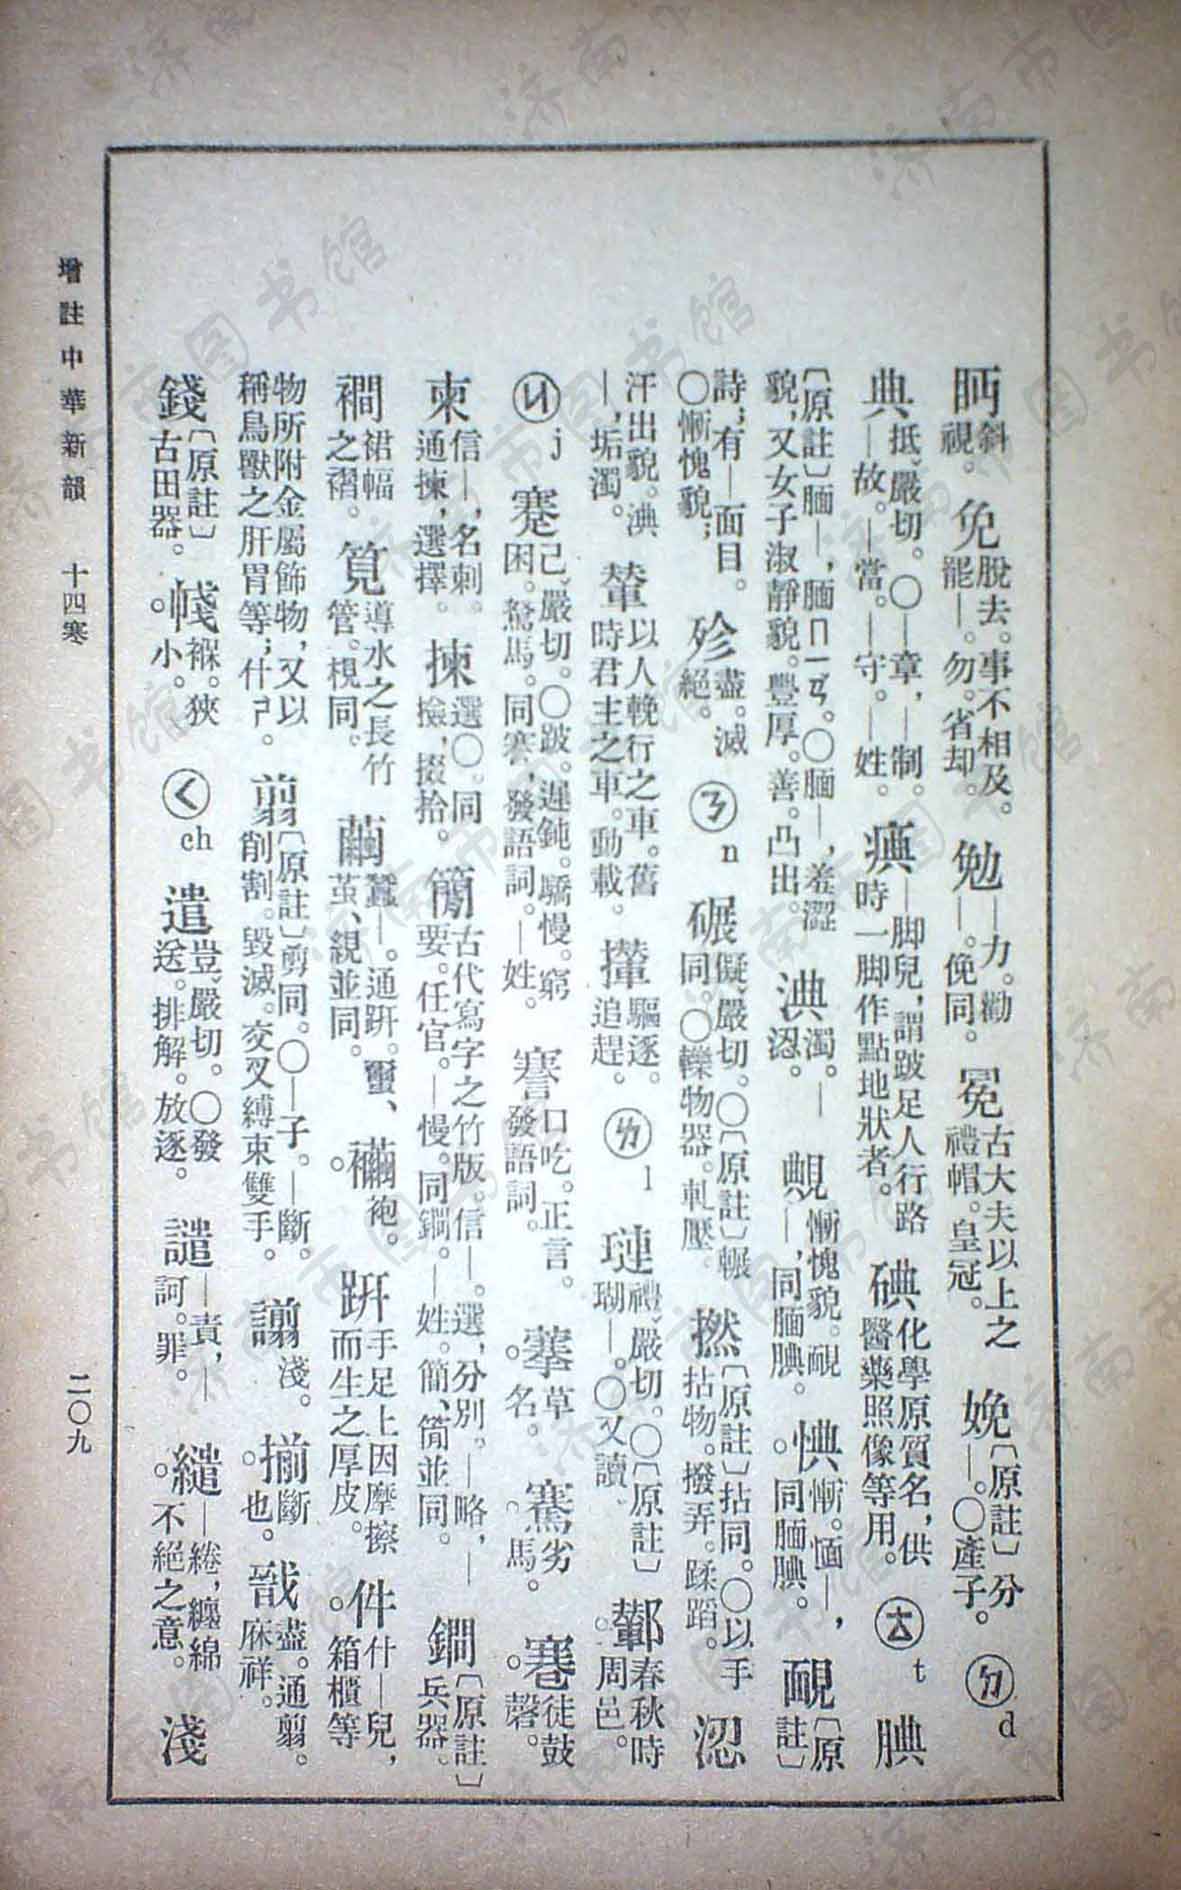 眄斜視。 免脫去。事不相及。罷—。勿。省却。 勉—力。勸—。俛同。 冕古大夫以上之禮帽。皇冠。 娩〔原註〕分—。〇產子。 ㄉd
典抵、嚴切。〇—章,—制。—故。—當。—守。—姓。 㾑—脚兒,謂跛足人行路時一脚作點地狀者。 碘化學原質名,供醫藥照像等用。 ㄊt 腆
〔原註〕靦—,靦ㄇㄧㄢ。〇靦—,羞澀貌,又女子淑靜貌。豐厚。善。凸出。 淟濁。—涊。 䩄慚愧貌。靦—,同靦腆。 惧慚。愐—,同靦腆。 靦〔原註〕
詩;有—面目。〇慚愧貌; 殄盡。滅絕。 ㄋn 碾儗、嚴切。〇〔原註〕輾同。〇轢物器。軋壓。 撚〔原註〕拈同。〇以手拈物。撥弄。蹂蹈。 涊
汗出貌。淟—,垢濁。 輦以人輓行之車。舊時君主之車。動載。 攆驅逐。追趕。 ㄌl 璉禮、嚴切。〇〔原註〕瑚—。〇又讀 鄻春秋時周邑。
ㄐj 蹇己、嚴切。〇跛。遲鈍。驕慢。窮困。駑馬。同謇,發語詞。—姓。 謇口吃。正言。發語詞。 𦽄草名。 騫劣馬。 寋徒鼓磬。
柬信—,名刺。通揀,選擇。 揀選〇。同撿,掇拾。 簡古代寫字之竹版。信—。選,分別。—略,—要。任官。—慢。同鐧。—姓。簡、蕳並同。 鐧〔原註〕兵器。
襉裙幅之褶。 筧導水之長竹管。梘同。 繭蠶—。通趼。蠒、茧、絸並同。 襺袍。 趼手足上因摩擦而生之厚皮。 件什—兒,箱櫃等
物所附金屬飾物,又以稱鳥獸之肝胃等;什ㄕ。 翦〔原註〕剪同。〇—子。—斷。削割。毀滅。交叉縛束雙手。 譾淺。 揃斷也。 戩盡。通翦。庥祥。
錢〔原註〕古田器。 㡨褓。狹小。 ㄑch 遣豈、嚴切。〇發送。排解。放逐。 譴—責,—訶。罪。 繾—綣,纏綿不絕之意。 淺
增註中華新韻 十四寒 二〇九